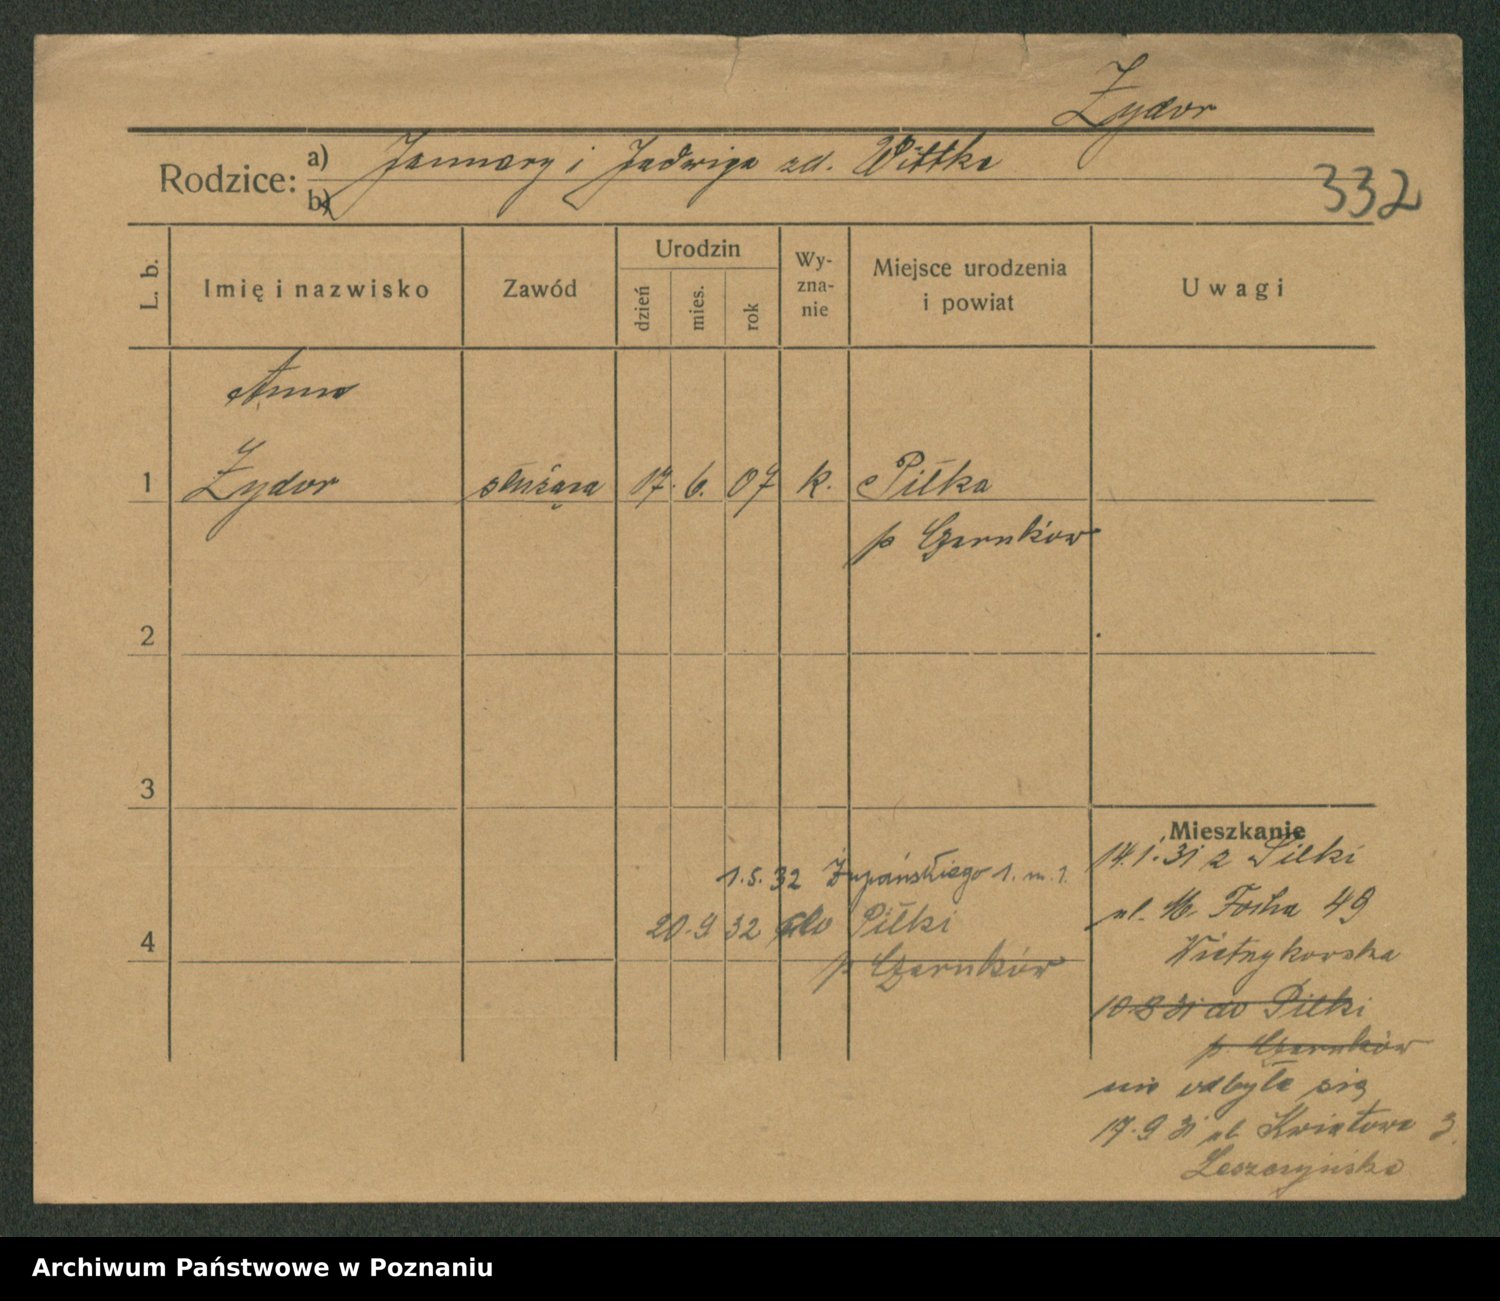 Żydor
Rodzice: a) January i Jadwiga zd. Wittke
b)
332
L. b.
Imię i nazwisko
Zawód
Urodzin
dzień
mies.
rok
Wy-
zna-
nie
Miejsce urodzenia
i powiat
Uwagi
Anna
1 Żydor służąca 17. 6. 07 k. Piłka
p Czarnków
2
3
Mieszkanie
14.1.31 z Piłki
ul. M. Focha 49
10 8 31 do Piłki
p. Czarnków
nie odbyła się
17.9 31 ul. Kwiatowa 3.
Leszczyńska
1.5.32 Żupańskiego 1. m. 1.
4 20.9 32 do Piłki
p Czarnków
Archiwum Państwowe w Poznaniu